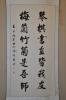 琴棋書畫皆我友
梅蘭竹菊是吾師